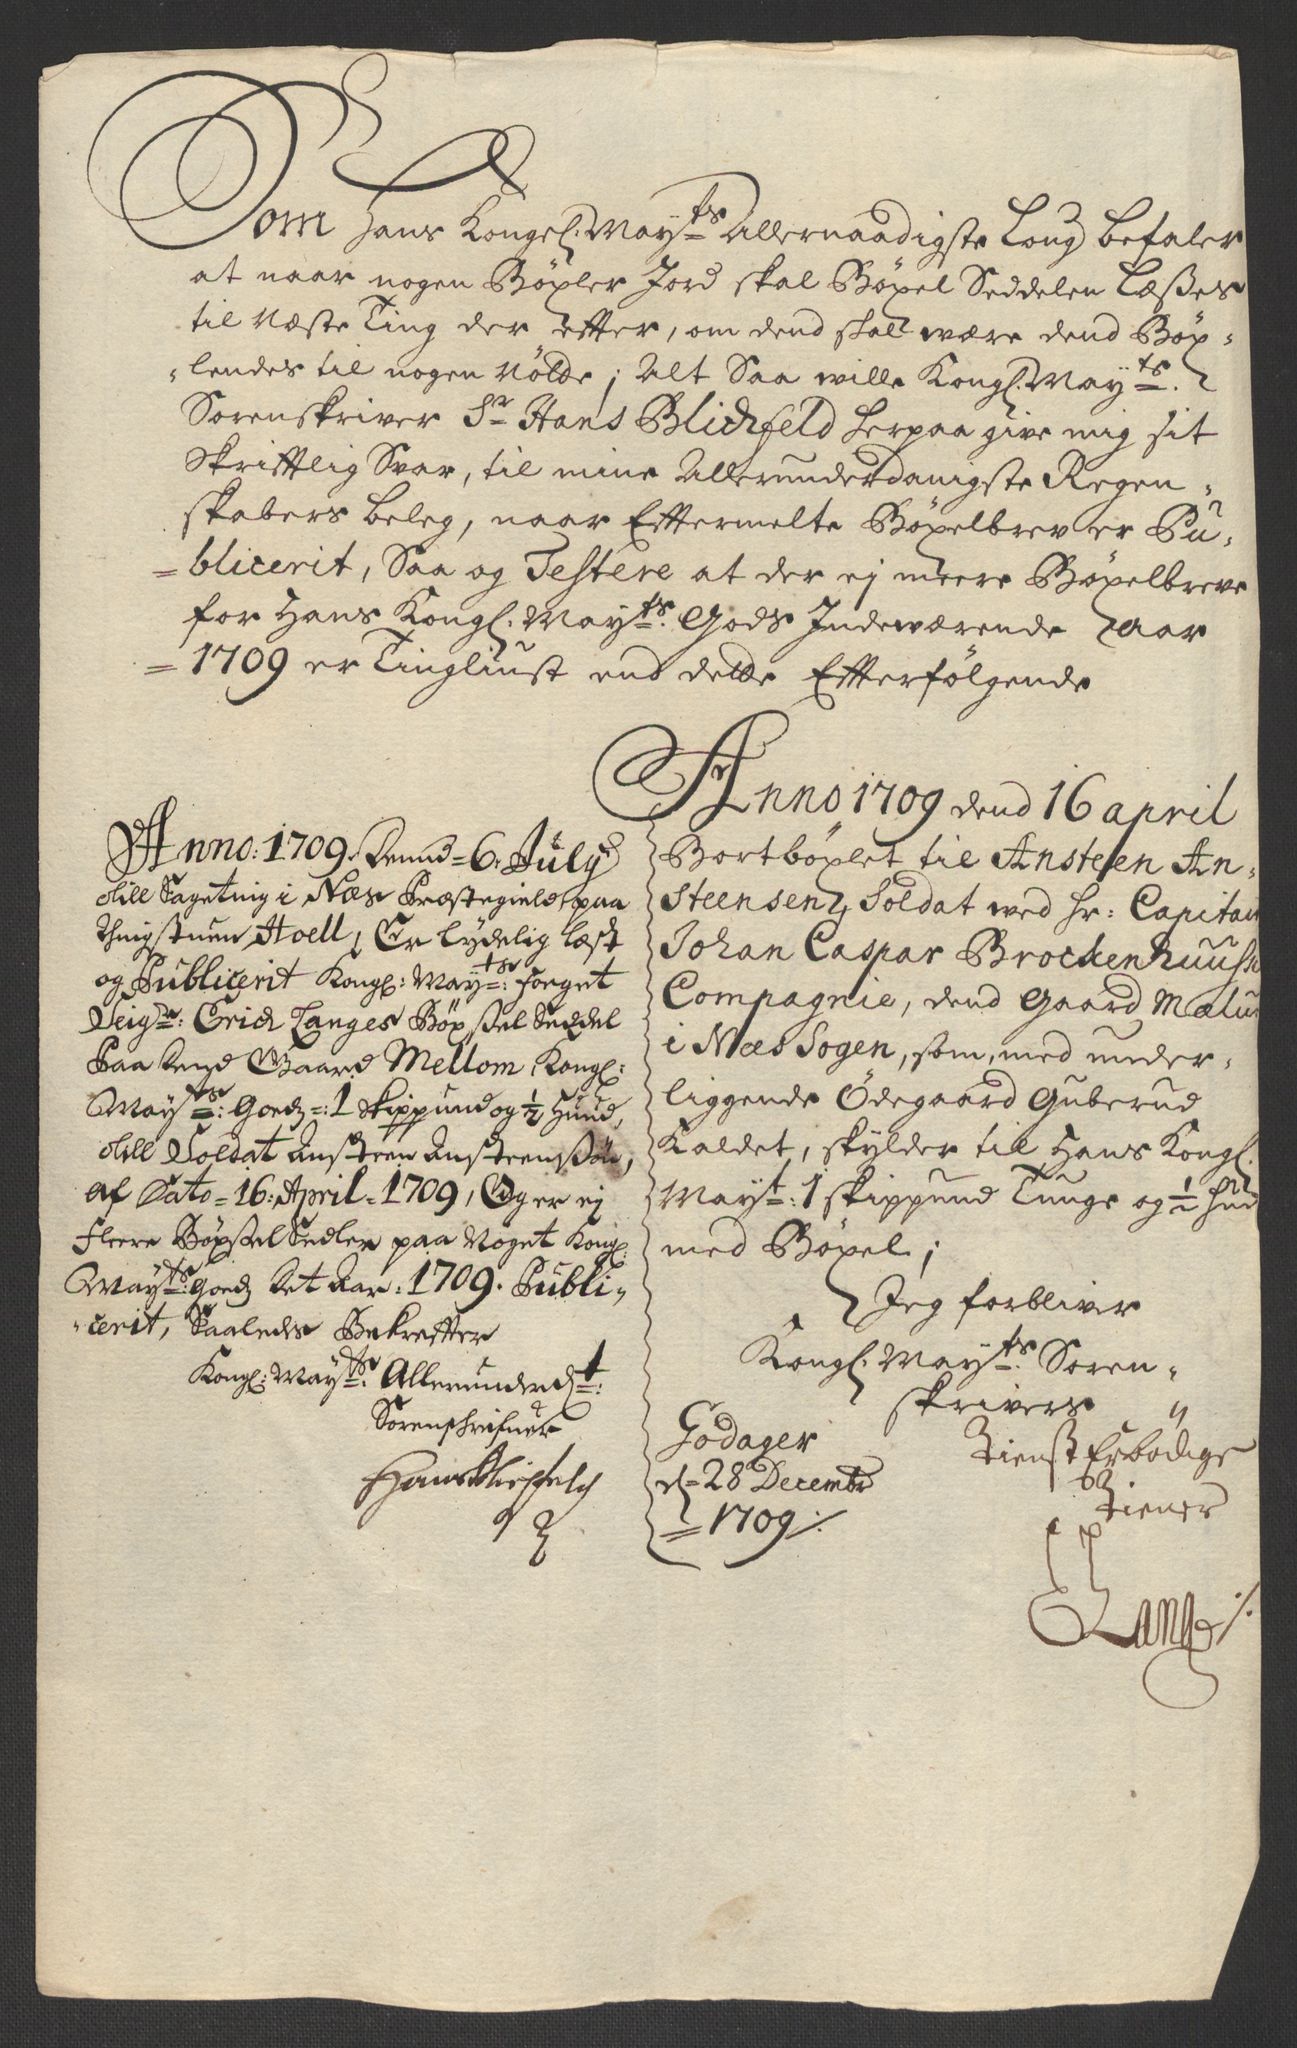 Som Hans Kongel. Mayts Allernaadigste Loug befaler
at naar nogen Böxler Jord skal Böxel Seddelen Læsses
til Næste Ting der effter, om dend skal være dend Böx-
-lendes til nogen Nötte; Alt Saa wille Kongl. Mayts.
Sorenskriver Sr Hans Blichfeld herpaa give mig sit
Skrifftlig Svar, til mine Allerunderdanigste Regen-
skabers beleg, naar Efftermelte Böxelbrev er Pu-
=blicerit, Saa og Testere at der ej meere Böxelbreve
for Hans Kongl. Mayts. Gods Indeværende Aar
=1709 er Tingliust end dette Effterfölgende
Anno 1709 dend 16 april
Bortböxlet til Ansteen An-
Steensen, Soldat wed hr: Capitai
Johan Caspar Brockenhuuss
Compagnie, dend Gaard Mælu
i Næs Sogen, som, med under-
liggende Ödegaard Guberud
Kaldet, skylder til Hans Kongl.
Mayt: 1 skippund Tunge og ½ hud
med Böxel;
Jeg forbliver
Kongl. Mayts. Soren-
skrivers
Tienst Erbödige
Tiener
Godager
d= 28 Decembr
=1709/.
E Lange /.
Anno: 1709. Dennd =6. July
Till Sageting i Næs Præstegield, paa
Thingstuen Hoell, Er lydelig læst
og Publicerit Kongl: Mayts: foeget
Seigr: Erich Langes Böxsel Seddel
Paa dend Gaard Mellom, Kongl:
Mayts: Goedz =: 1 Skippund og ½ Huud,
Till Soldat Ansteen Ansteensön,
af Dato =16. April =1709, Og er ej
fleere Böxsel Sedler paa Noget Kongl:
Mayts: Goedz det Aar: 1709. Publi-
-cerit, Saaledes Bekreffter
Kongl: Mayts: Allerunderdt:
Sorenschrifuer
Hans Blichfeld